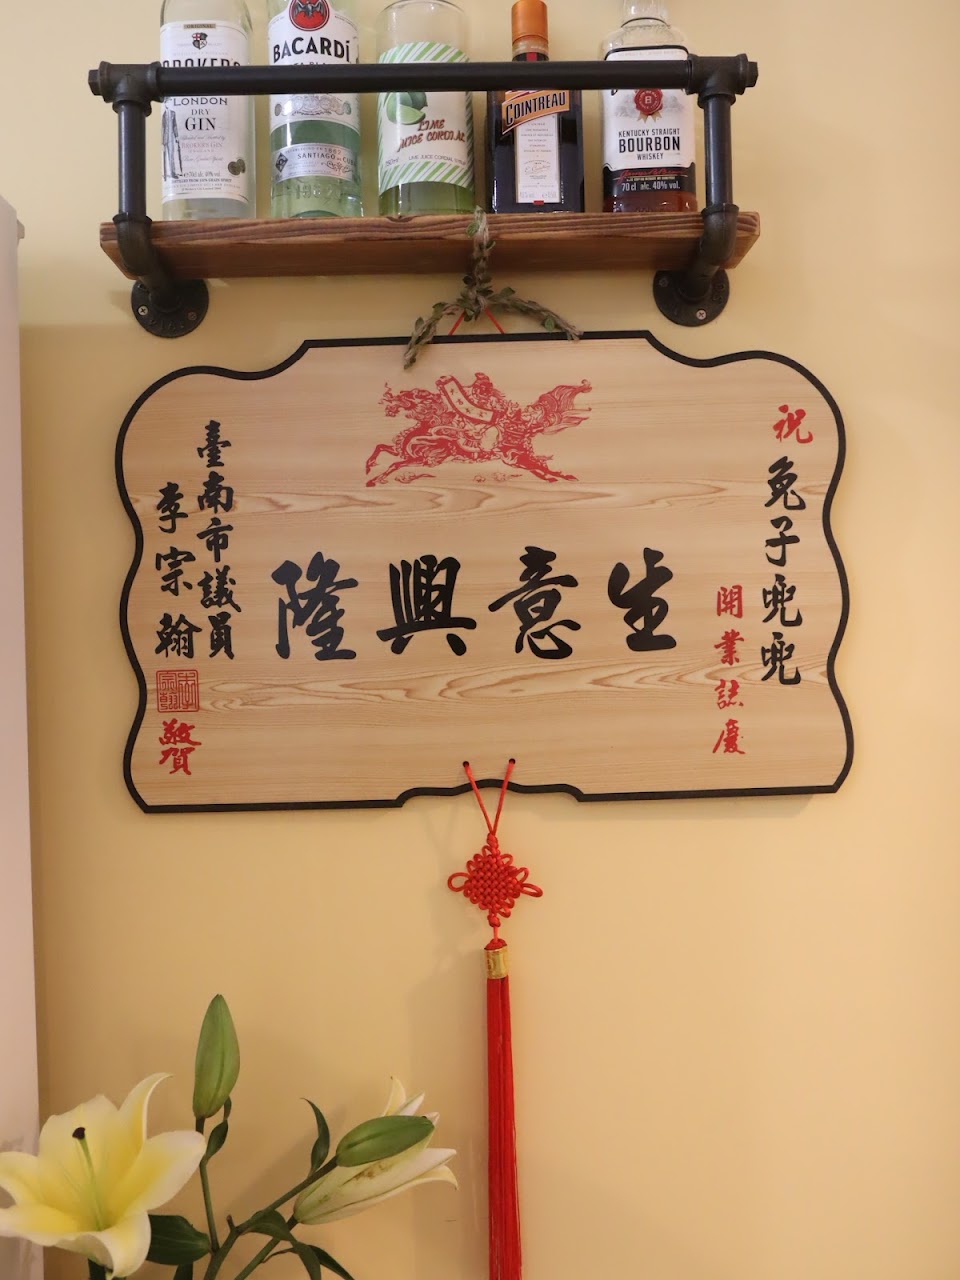 BROKERS
LONDON
DRY
GIN
BACARDÍ
SANTIAGO DE CUBA
LIME
JUICE CORDIAL
LIME JUICE CORDIAL SYRUP
COINTREAU
B
KENTUCKY STRAIGHT
BOURBON
WHISKEY
70 cl alc. 40% vol.
祝
兔子兜兜
開業誌慶
生意興隆
臺南市議員
李宗翰
李宗翰
敬賀